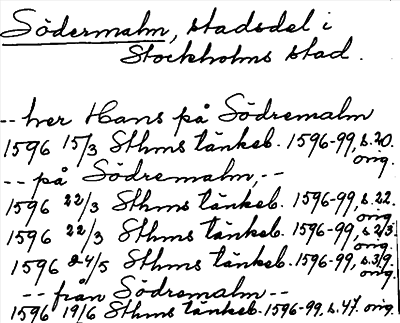 Södermalm, stadsdel i
Stockholms stad.
-- her Hans på Södremalm
1596 15/3 Sthms tänkeb. 1596-99, s. 20.
orig.
-- på Södremalm, --
1596 22/3 Sthms tänkeb. 1596-99, s. 22.
orig.
1596 22/3 Sthms tänkeb. 1596-99, s. 23.
orig.
1596 24/5 Sthms tänkeb. 1596-99, s. 39.
orig.
-- från Södremalm --
1596 19/6 Sthms tänkeb. 1596-99, s. 47. orig.